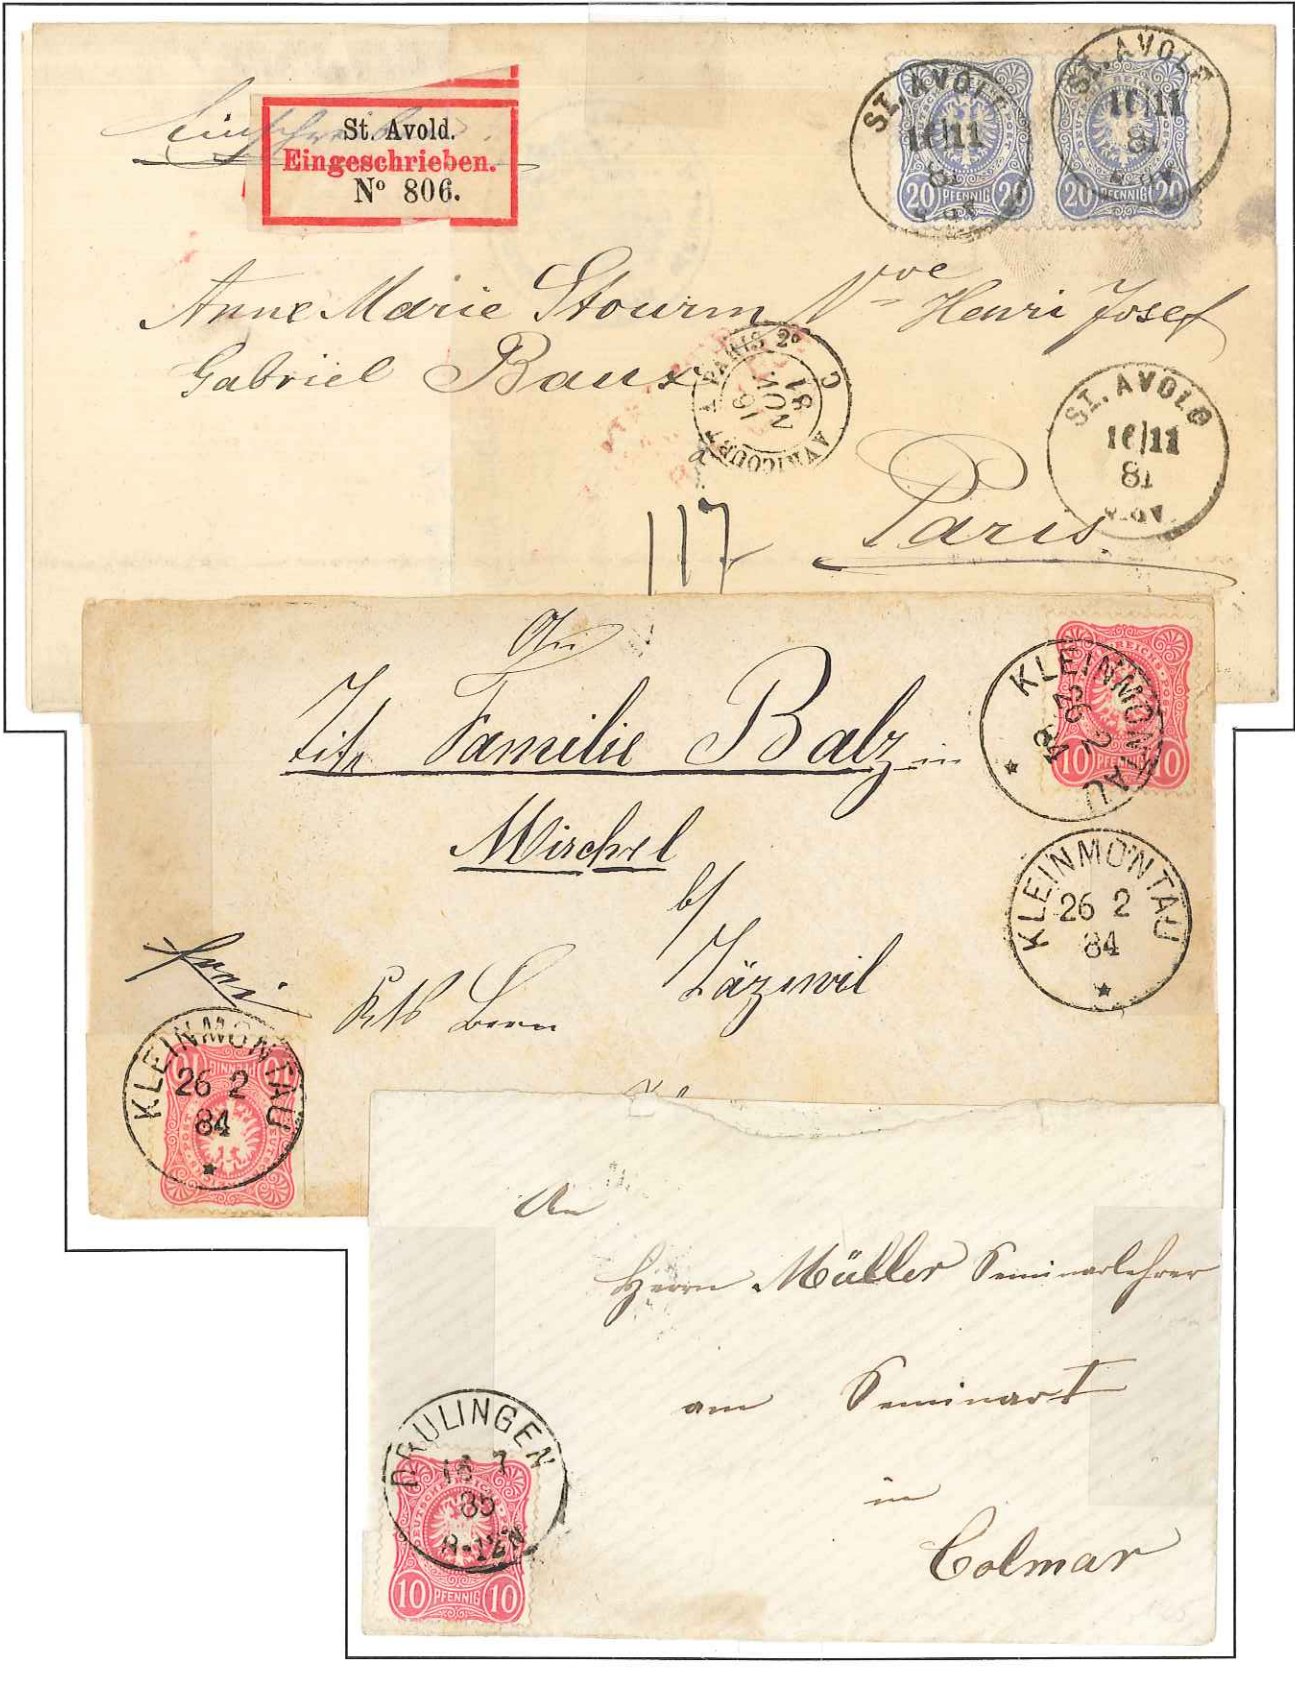 St. Avold.
Eingeschrieben.
Nº 806.
ST. AVOLD
11
81
20 PFENNIG 20
ST. AVOLD
11
81
20 PFENNIG 20
Anne Marie Stourm Vve Henri Josef
Gabriel Baux
AVRICOURT A PARIS 2º
C
16
NOV
81
ST. AVOLD
11
81
117
Paris.
An
Familie Balz in
Mirchel
b/
Zäziwil
Kts Bern
frei
KLEINMONTAU
26 2
84
10 PFENNIG 10
KLEINMONTAU
26 2
84
KLEINMONTAU
26 2
84
10 PFENNIG 10
An
Herrn Müller Seminarlehrer
am Seminar I
in
Colmar
DRULINGEN
7
85
8-12N
DEUTSCHE REICHS-POST
10 PFENNIG 10